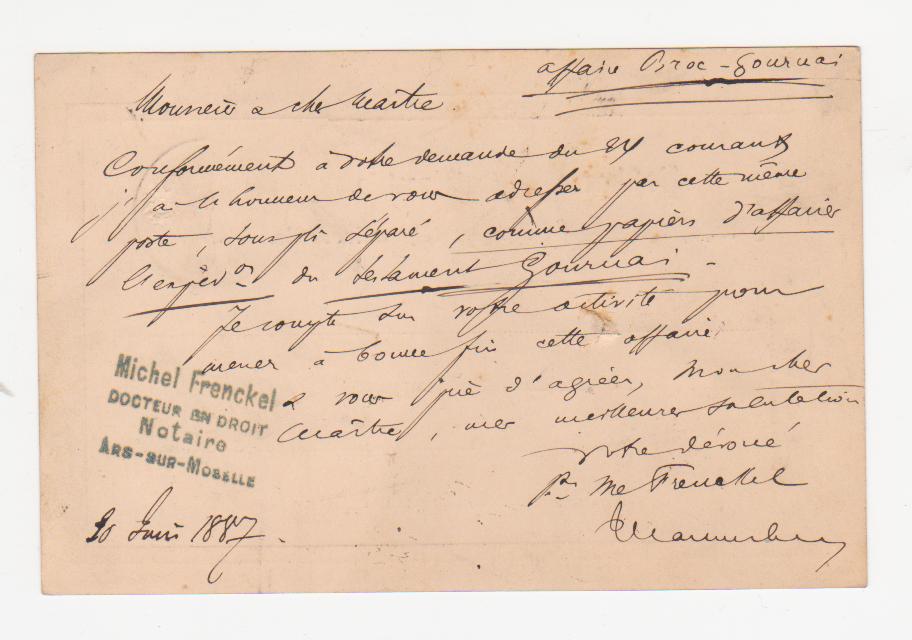 affaire Broc-Gournai
Monsieur & cher Maître
Conformément à votre demande du 24 courant
j'ai l'honneur de vous adresser par cette même
poste, sous pli séparé, comme papiers d'affaires
l'expéd.on du testament Gournai -
Je compte sur votre activité pour
mener à bonne fin cette affaire
& vous prie d'agréer, mon cher
Maître, mes meilleures salutations
Votre dévoué
Pr Me Frenckel
Michel Frenckel
DOCTEUR EN DROIT
Notaire
ARS-SUR-MOSELLE
30 Juin 1887.